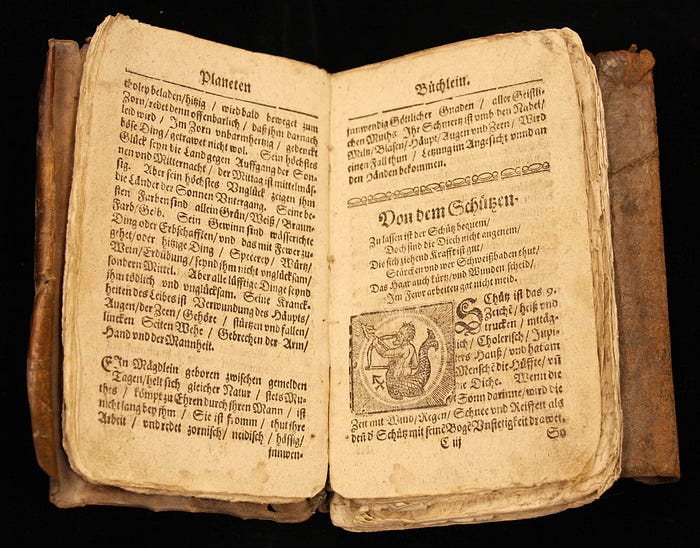 Planeten
Coley beladen/hitzig / wird bald beweget zum
Zorn/redet denn offenbarlich / daß ihm darnach
leid wird / Im Zorn unbarmhertzig / gedenckt
böse Ding/getrawet nicht wol. Sein höchstes
Glück seyn die Land gegen Auffgang der Son-
nen und Mitternacht / der Mittag ist mittelmäs-
sig. Aber sein höchstes Unglück zeigen ihm
die Länder der Sonnen Untergang. Seine be-
sten Farben sind allein Grün/ Weiß/ Braun-
Farb/Gelb. Sein Gewinn sind wässerichte
Ding oder Erbschafften/ und das mit Fewer zu-
gehet/oder hitzige Ding / Specerey / Würtz/
Wein/Erdübung/seynd ihm nicht unglücksam/
sondern Mittel. Aber alle lüfftige Dinge seynd
ihm tödlich und unglücksam. Seine Kranck-
heiten des Leibes ist Verwundung des Häupts/
Augen/der Zeen/ Gehöre / stürtzen und fallen/
lincken Seiten Wehe / Gebrechen der Arm/
Hand und der Mannheit.
EIn Mägdlein geboren zwischen gemelden
Tagen/helt sich gleicher Natur / stets Mu-
thes / kömpt zu Ehren durch ihren Mann / ist
nicht lang bey ihm / Sie ist fromm / thut ihre
Arbeit / und redet zornisch/ neidisch / hässig/
innwen-
Büchlein.
innwendig Göttlicher Gnaden / aller Geistli-
chen Muths. Ihr Schmertz ist umb den Nabel/
Miltz/Blasen/Häupt/ Augen und Zeen/ Wird
einen Fall thun / Letzung im Angesicht unnd an
den Händen bekommen.
Von dem Schützen.
Zu lassen ist der Schütz bequem/
Doch sind die Diech nicht angenem/
Die sich ziehend Krafft ist gut/
Stärcken und wer Schweißbaden thut/
Das Haar auch kürtz/und Wunden scheid/
Im Fewr arbeiten gat nicht meid.
SChütz ist das 9.
Zeicht/ heiß und
trucken / mittäg-
lich / Cholerisch / Jupi-
ters Hauß/ und hat am
Mensche die Hüffte/ uñ
die Diche. Wenn die
Sonn darinne/wird die
Zeit mit Wind/Regen/ Schnee und Reiffen als
den d' Schütz mit seine Bogē Unstetigkeit drawet.
C iij
So